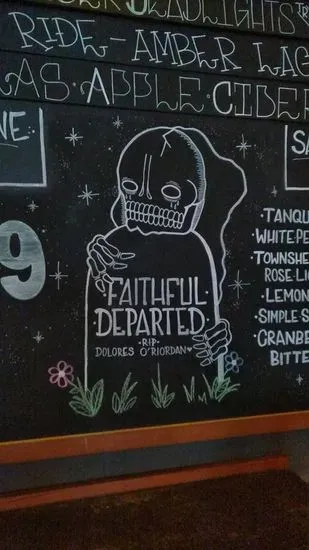 DEADLIGHTS
RIDE-AMBER LAG
LAS·APPLE·CIDER
9
FAITHFUL
·DEPARTED·
·RIP·
DOLORES O'RIORDAN
·TANQU
·WHITE·PE
·TOWNSHE
ROSE·LI
·LEMON
·SIMPLE S
·CRANBE
BITTE